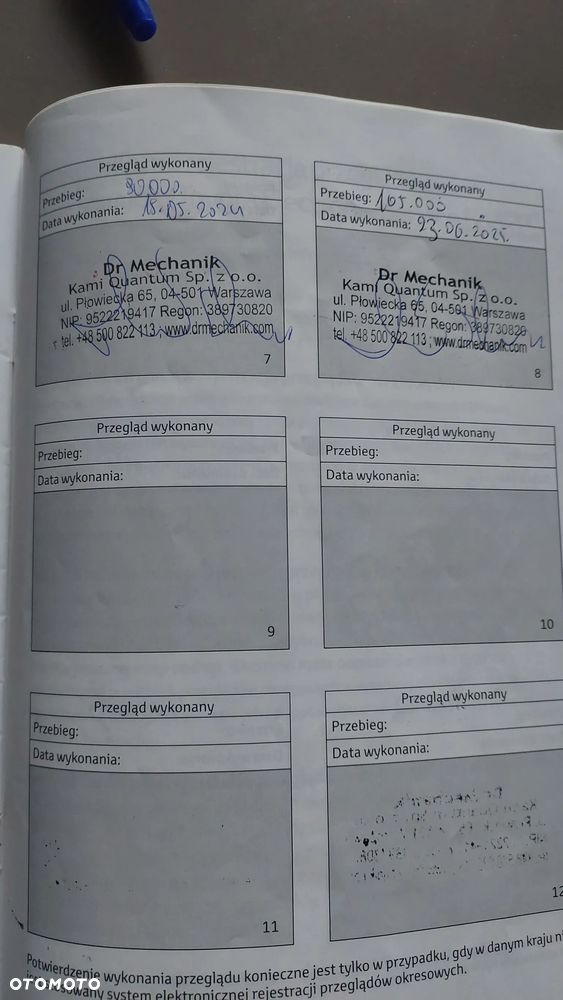 Przegląd wykonany
Przebieg: 90000.
Data wykonania: 18.05.2024
Dr Mechanik
Kami Quantum Sp. z o.o.
ul. Płowiecka 65, 04-501 Warszawa
NIP: 9522219417 Regon: 389730820
tel. +48 500 822 113 ; www.drmechanik.com
7
Przegląd wykonany
Przebieg: 105.000
Data wykonania: 23.06.2025.
Dr Mechanik
Kami Quantum Sp. z o.o.
ul. Płowiecka 65, 04-501 Warszawa
NIP: 9522219417 Regon: 389730820
tel. +48 500 822 113 ; www.drmechanik.com
8
Przegląd wykonany
Przebieg:
Data wykonania:
9
Przegląd wykonany
Przebieg:
Data wykonania:
10
Przegląd wykonany
Przebieg:
Data wykonania:
11
Przegląd wykonany
Przebieg:
Data wykonania:
12
Potwierdzenie wykonania przeglądu konieczne jest tylko w przypadku, gdy w danym kraju
system elektronicznej rejestracji przeglądów okresowych.
OTOMOTO